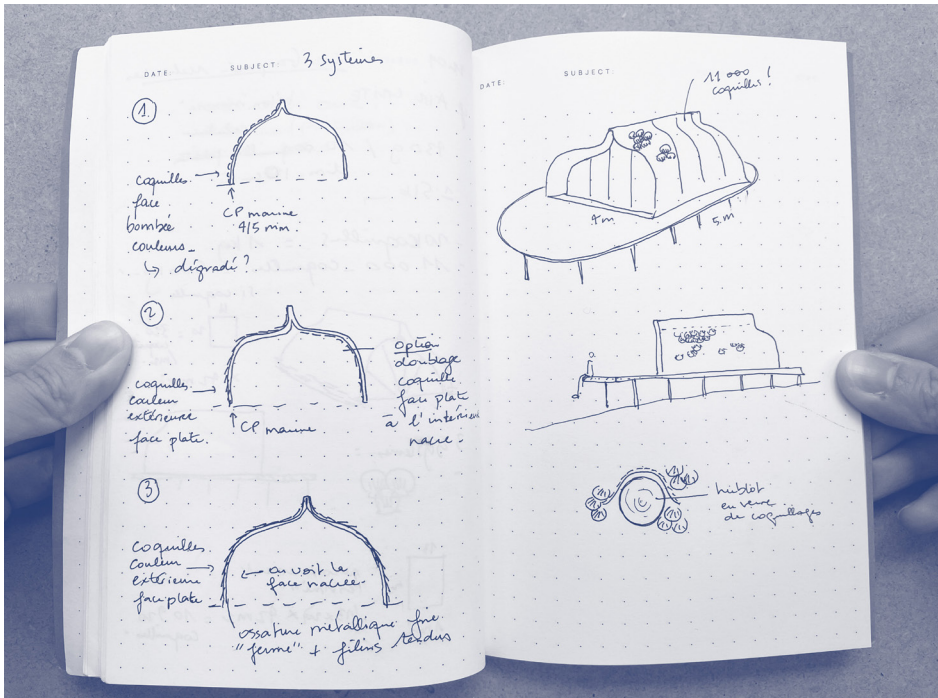 DATE:
SUBJECT: 3 systèmes
1.
coquilles
face
bombée
couleurs
↳ dégradé ?
CP marine
4/5 mm.
2
coquilles
couleur
extérieure
face plate.
CP marine
option
doublage
coquille
face plate
à l'intérieur
nacre.
3
coquilles
couleur
extérieure
face plate
on voit la
face nacrée.
ossature métallique fine
"ferme" + filins tendus
DATE:
SUBJECT:
11 000
coquilles !
4 m
5 m
hublot
en verre
de coquillages